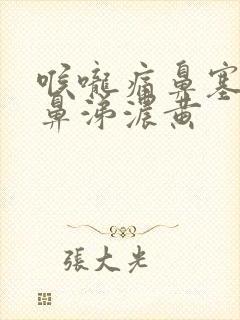 喉嚨痛鼻塞
鼻涕濃黃
張大光